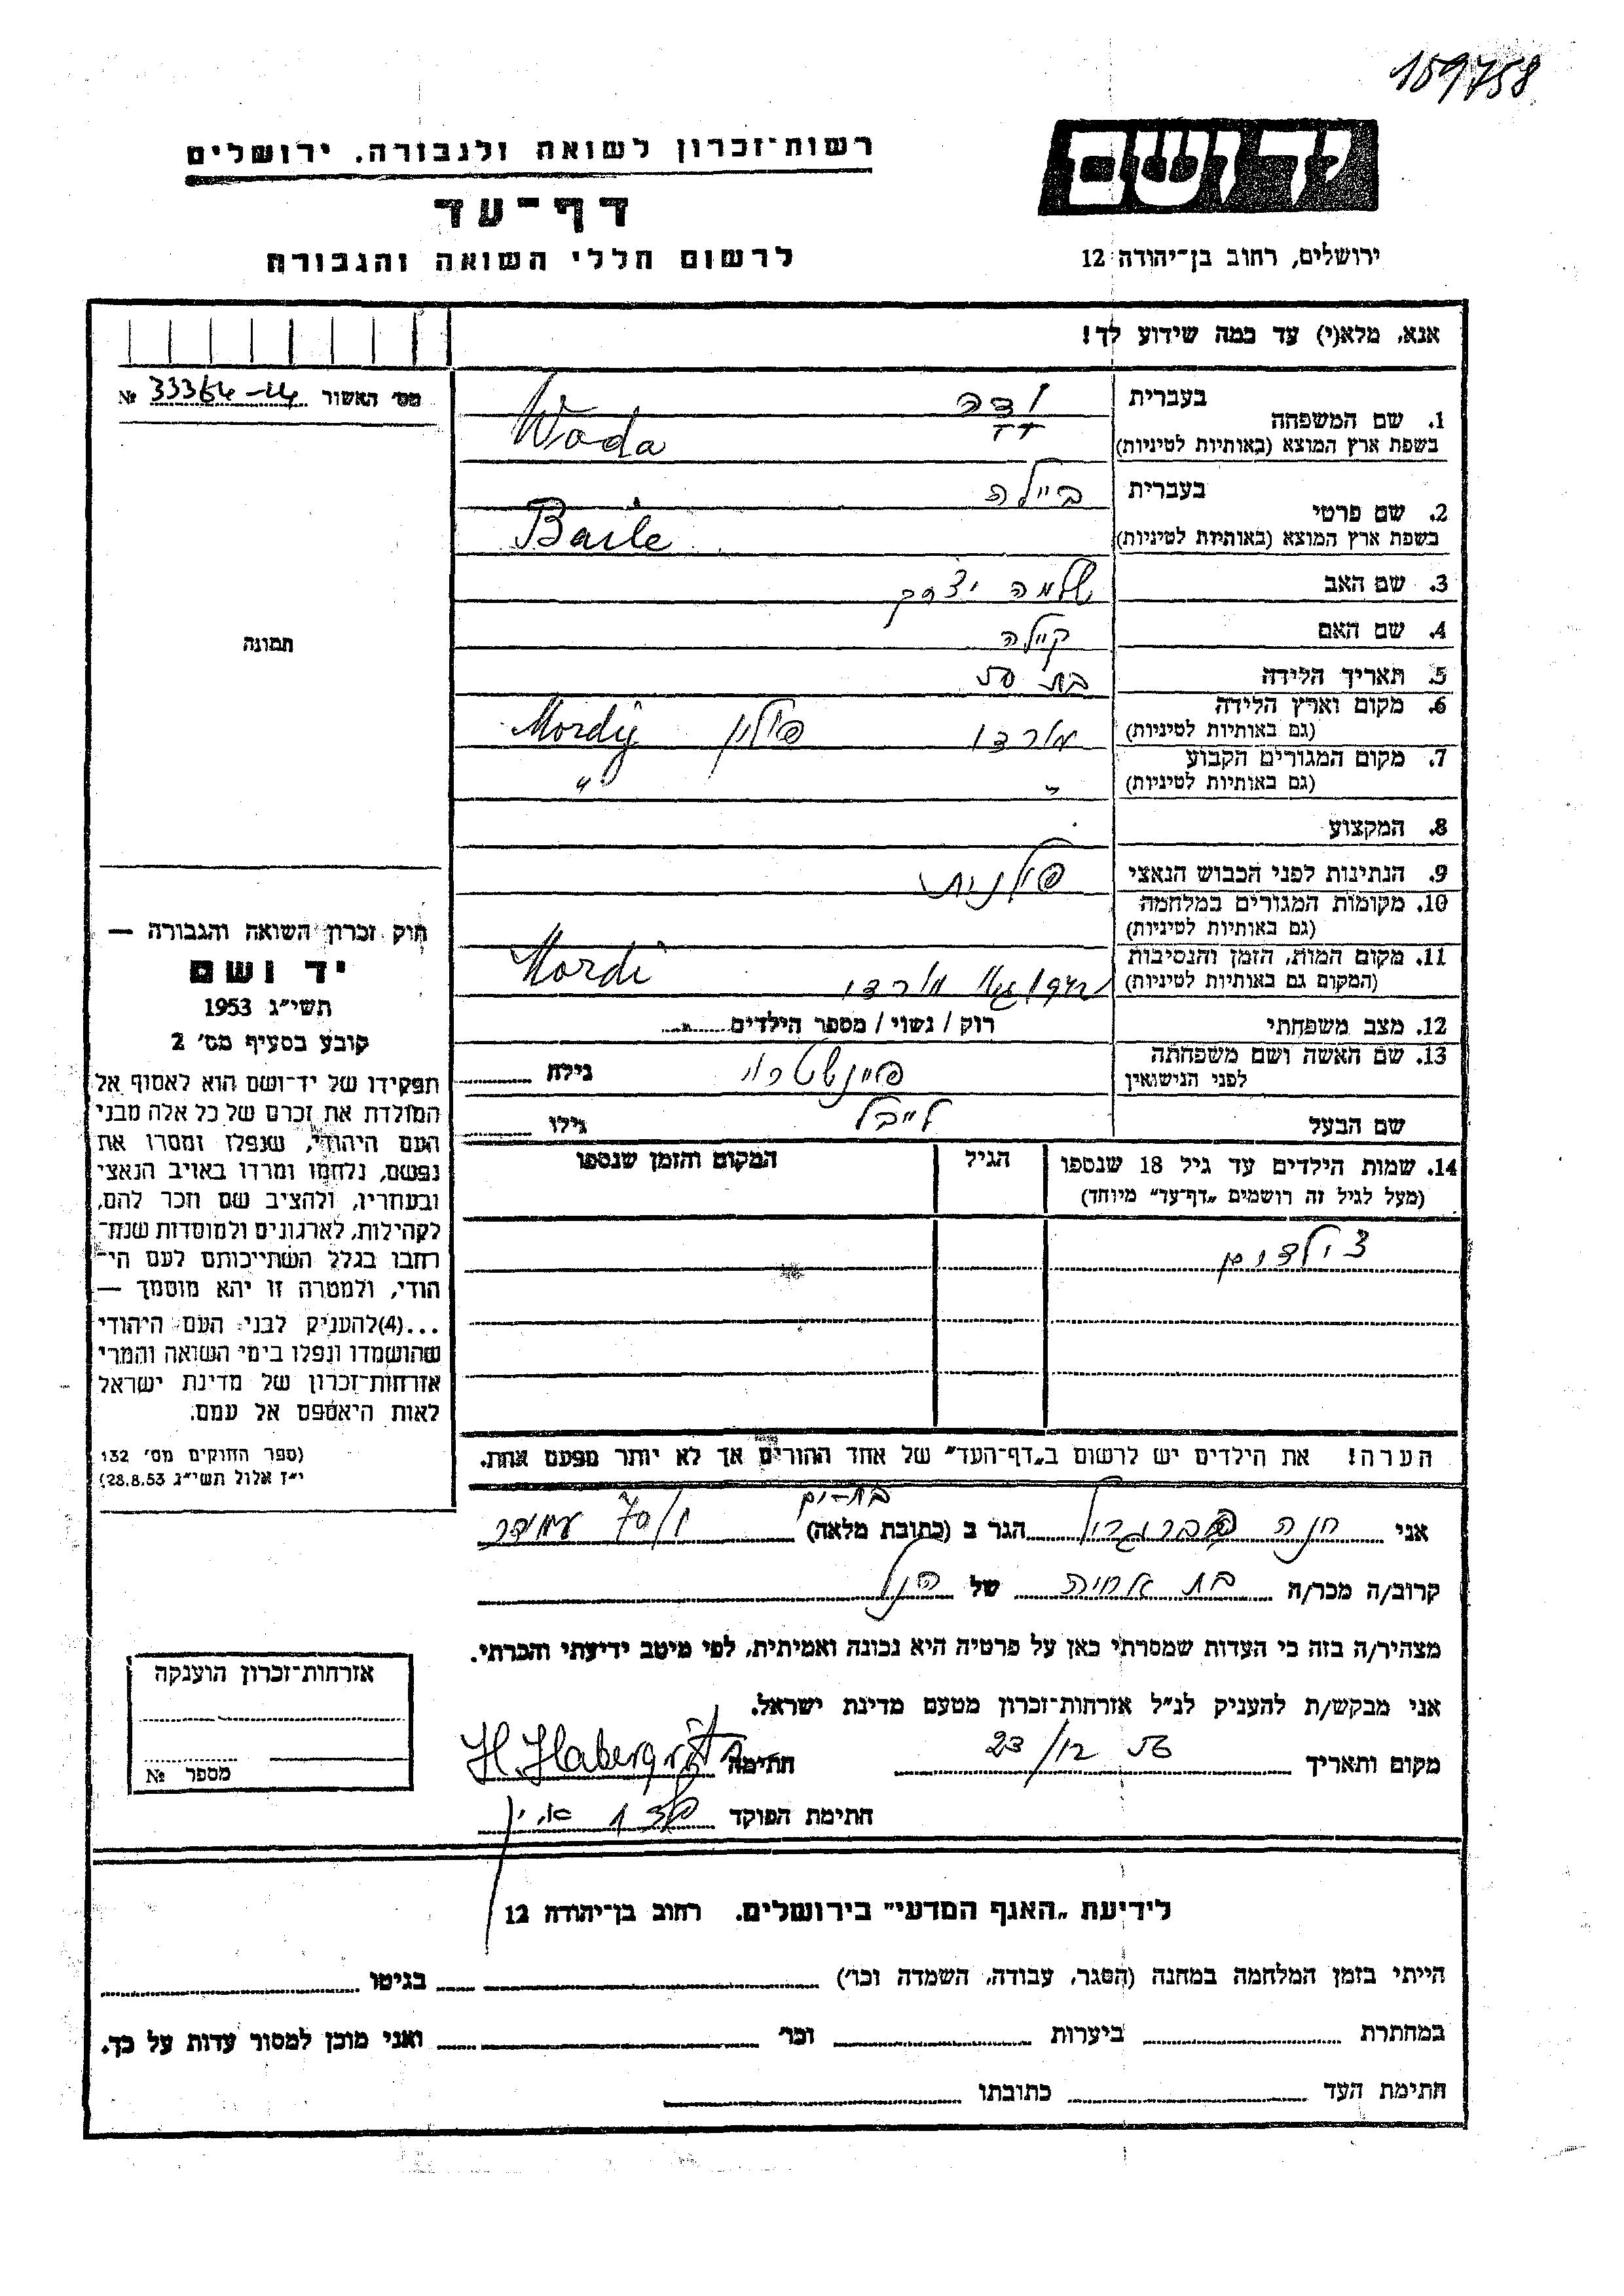 159758
יד ושם
רשות-זכרון לשואה ולגבורה. ירושלים
דף-עד
ירושלים, רחוב בן-יהודה 12
לרשום חללי השואה והגבורה
אנא, מלא(י) עד כמה שידוע לך!
מס' האשור 33364-44 №
בעברית ודה
1. שם המשפחה
בשפת ארץ המוצא (באותיות לטיניות) Woda
בעברית ביילה
2. שם פרטי
בשפת ארץ המוצא (באותיות לטיניות) Baile
3. שם האב שלמה יצחק
4. שם האם קיילה
5. תאריך הלידה בת
6. מקום וארץ הלידה
(גם באותיות לטיניות) מורדי פולין Mordy
7. מקום המגורים הקבוע
(גם באותיות לטיניות) " "
8. המקצוע
9. הנתינות לפני הכבוש הנאצי פולנית
10. מקומות המגורים במלחמה
(גם באותיות לטיניות)
11. מקום המות, הזמן והנסיבות
(המקום גם באותיות לטיניות) מורדי Mordi
12. מצב משפחתי רוק / נשוי / מספר הילדים
13. שם האשה ושם משפחתה
לפני הנישואין גילה
שם הבעל לייבל גילו
14. שמות הילדים עד גיל 18 שנספו הגיל המקום והזמן שנספו
(מעל לגיל זה רושמים „דף-עד" מיוחד)
ילדים
הערה! את הילדים יש לרשום ב„דף-העד" של אחד ההורים אך לא יותר מפעם אחת.
תמונה
חוק זכרון השואה והגבורה —
יד ושם
תשי"ג 1953
קובע בסעיף מס' 2
תפקידו של יד-ושם הוא לאסוף אל
המולדת את זכרם של כל אלה מבני
העם היהודי, שנפלו ומסרו את
נפשם, נלחמו ומרדו באויב הנאצי
ובעוזריו, ולהציב שם וזכר להם,
לקהילות, לארגונים ולמוסדות שנח-
רבו בגלל השתייכותם לעם הי-
הודי, ולמטרה זו יהא מוסמך —
...(4)להעניק לבני העם היהודי
שהושמדו ונפלו בימי השואה והמרי
אזרחות-זכרון של מדינת ישראל
לאות היאספם אל עמם.
(ספר החוקים מס' 132
י"ז אלול תשי"ג 28.8.53)
בת-ים
אני חנה הגר ב (כתובת מלאה) 70/1
קרוב/ה מכר/ה בת אחיה של הנ"ל
מצהיר/ה בזה כי העדות שמסרתי כאן על פרטיה היא נכונה ואמיתית, לפי מיטב ידיעתי והכרתי.
אני מבקש/ת להעניק לנ"ל אזרחות-זכרון מטעם מדינת ישראל.
מקום ותאריך 23/12 חתימה
חתימת הפוקד
אזרחות-זכרון הוענקה
מספר №
לידיעת „האגף המדעי" בירושלים. רחוב בן-יהודה 12
הייתי בזמן המלחמה במחנה (הסגר, עבודה, השמדה וכו') בגיטו
במחתרת ביערות וכו' ואני מוכן למסור עדות על כך.
חתימת העד כתובתו